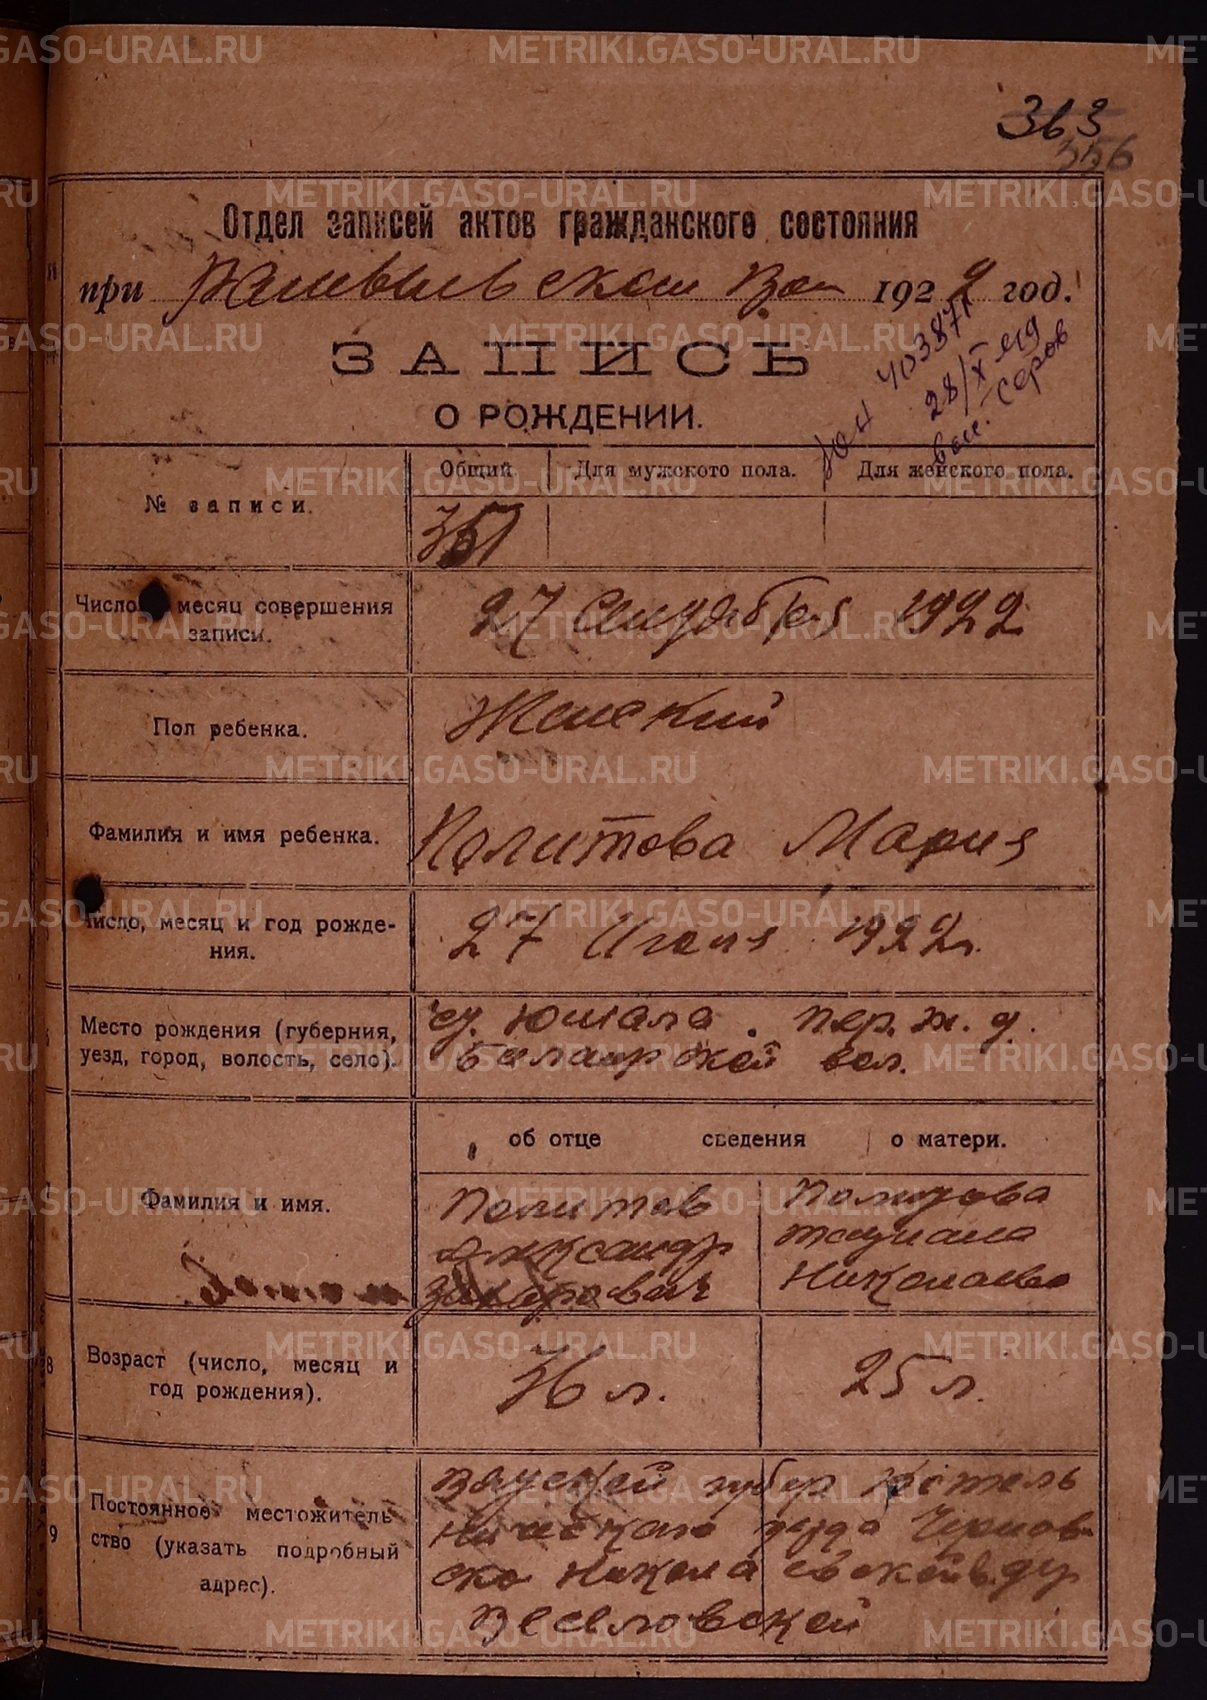 METRIKI.GASO-URAL.RU
363
356
Отдел записей актов гражданского состояния
при 1922 год.
403871
28/X
Серов
ЗАПИСЬ
О РОЖДЕНИИ.
№ записи.
Общий Для мужского пола. Для женского пола.
351
Число месяц совершения
записи.
27 Сентября 1922
Пол ребенка.
Женский
Фамилия и имя ребенка.
Политова Мария
Число, месяц и год рожде-
ния.
27 Июля 1922 г.
Место рождения (губерния,
уезд, город, волость, село).
Юшала пер. ж. д.
вол.
об отце сведения о матери.
Фамилия и имя.
Политов
Александр
Захарович
Политова
татиана
Николаевна
8 Возраст (число, месяц и
год рождения).
36 л.
25 л.
9 Постоянное местожитель-
ство (указать подробный
адрес).
губер Котель
уезда Чернов
ско Никола
Веселовской